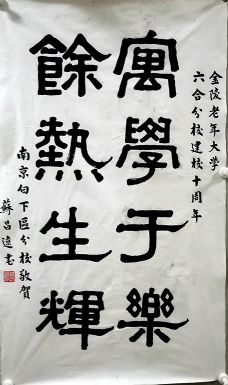 金陵老年大学
六合分校建校十周年
寓學于樂
餘熱生輝
南京白下區分校敬賀
蘇昌遠书